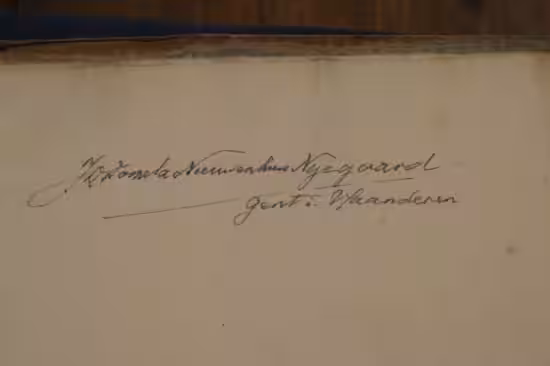 JD Domela Nieuwenhuis Nyegaard
Gent i. Vlaanderen